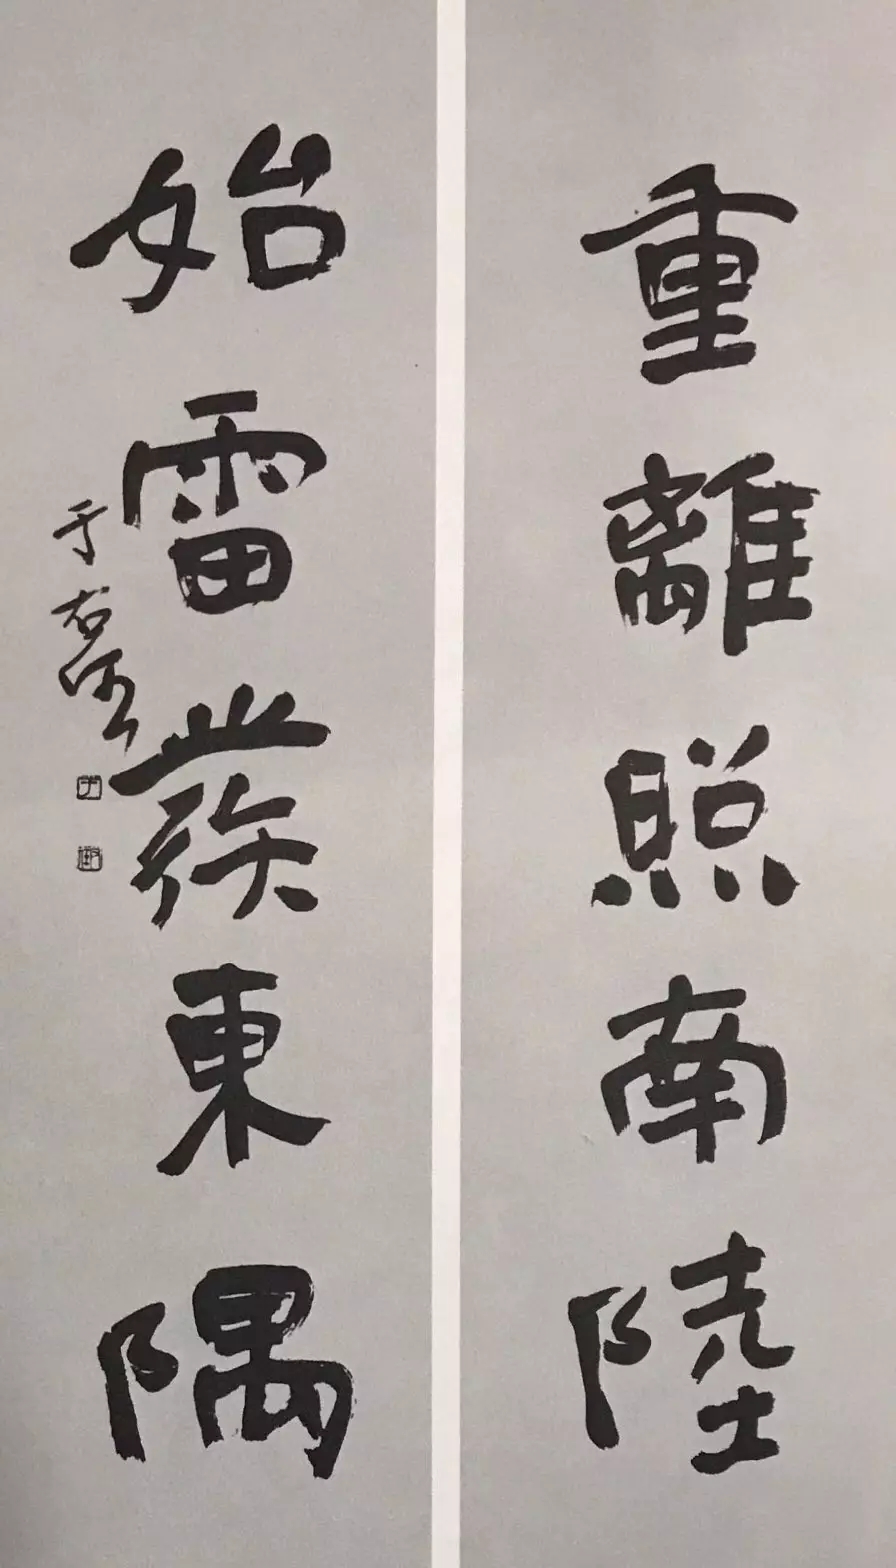 重離照南陸
始雷發東隅
于